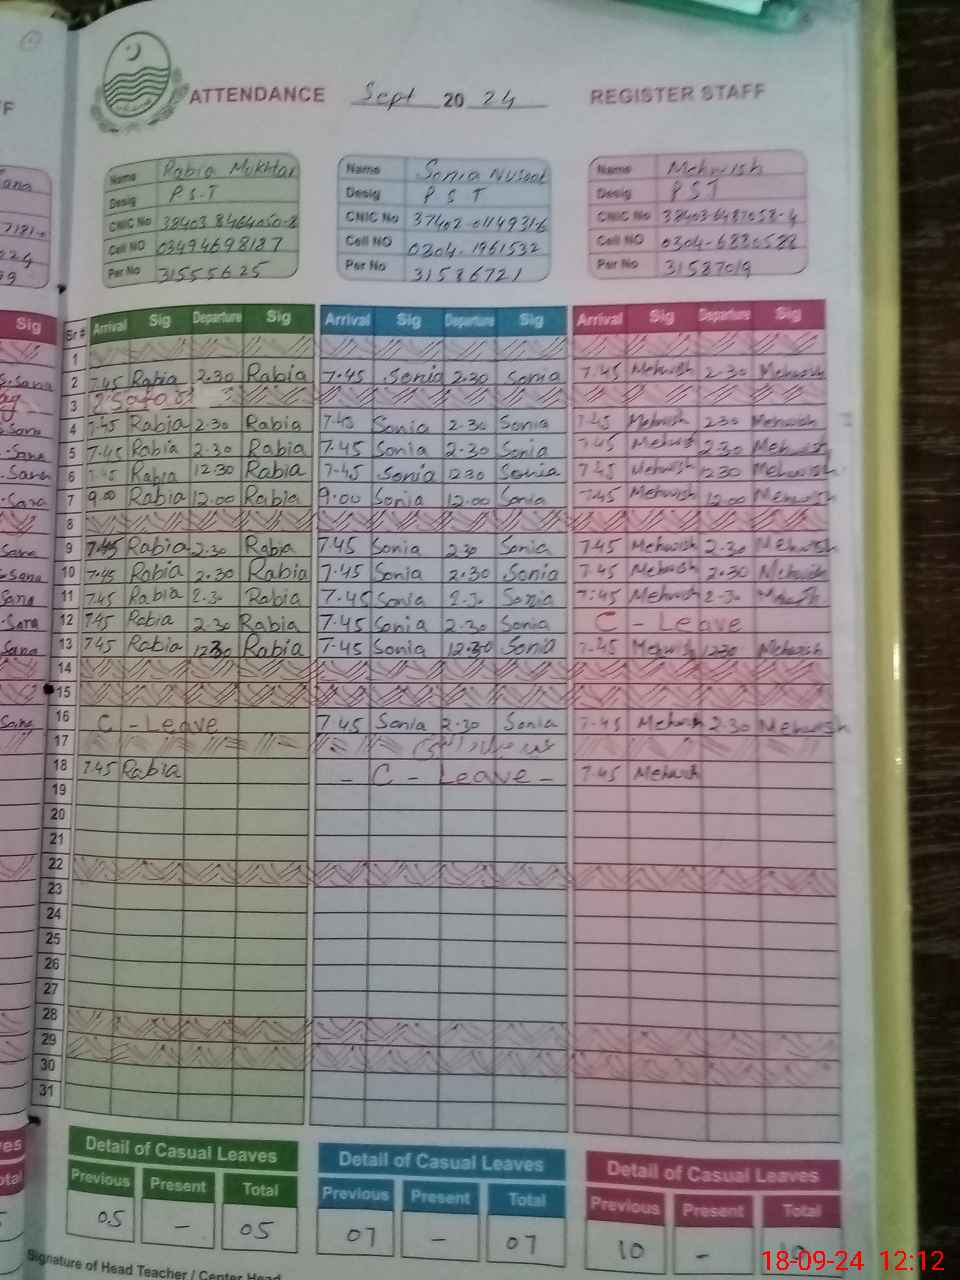 ATTENDANCE Sept 20 24 REGISTER STAFF
Name Rabia Mukhtar
Desig P.S.T
CNIC No 38403 8464050-8
Cell NO 03494698187
Per No 31555625
Name Sonia
Desig P S T
CNIC No
Cell NO 0304-1961532
Per No 31586721
Name Mehwish
Desig PST
CNIC No 38403-6487058-4
Cell NO
Per No 31587019
Sig
Sr # Arrival Sig Departure Sig Arrival Sig Departure Sig Arrival Sig Departure Sig
1
2 7.45 Rabia 2.30 Rabia 7.45 Sonia 2.30 Sonia 7.45 Mehwish 2.30 Mehwish
3
4 7.45 Rabia 2.30 Rabia 7.45 Sonia 2.30 Sonia 7.45 Mehwish 2.30 Mehwish
5 7.45 Rabia 2.30 Rabia 7.45 Sonia 2.30 Sonia 7.45 Mehwish 2.30 Mehwish
6 7.45 Rabia 12.30 Rabia 7.45 Sonia 12.30 Sonia 7.45 Mehwish 12.30 Mehwish
7 9.00 Rabia 12.00 Rabia 9:00 Sonia 12.00 Sonia 7.45 Mehwish 12.00 Mehwish
8
9 7.45 Rabia 2.30 Rabia 7.45 Sonia 2.30 Sonia 7.45 Mehwish 2.30 Mehwish
10 7.45 Rabia 2.30 Rabia 7.45 Sonia 2.30 Sonia 7.45 Mehwish 2.30 Mehwish
11 7.45 Rabia 2.30 Rabia 7.45 Sonia 2.30 Sonia 7:45 Mehwish 2.30 Mehwish
12 7.45 Rabia 2.30 Rabia 7.45 Sonia 2.30 Sonia C - Leave
13 7.45 Rabia 12.30 Rabia 7.45 Sonia 12.30 Sonia 7.45 Mehwish 12.30 Mehwish
14
15
16 C - Leave 7.45 Sonia 2.30 Sonia 7.45 Mehwish 2.30 Mehwish
17
18 7.45 Rabia - C - Leave - 7.45 Mehwish
19
20
21
22
23
24
25
26
27
28
29
30
31
Detail of Casual Leaves Detail of Casual Leaves Detail of Casual Leaves
Previous Present Total Previous Present Total Previous Present Total
05 - 05 07 - 07 10 - 10
Signature of Head Teacher / Center Head
18-09-24 12:12